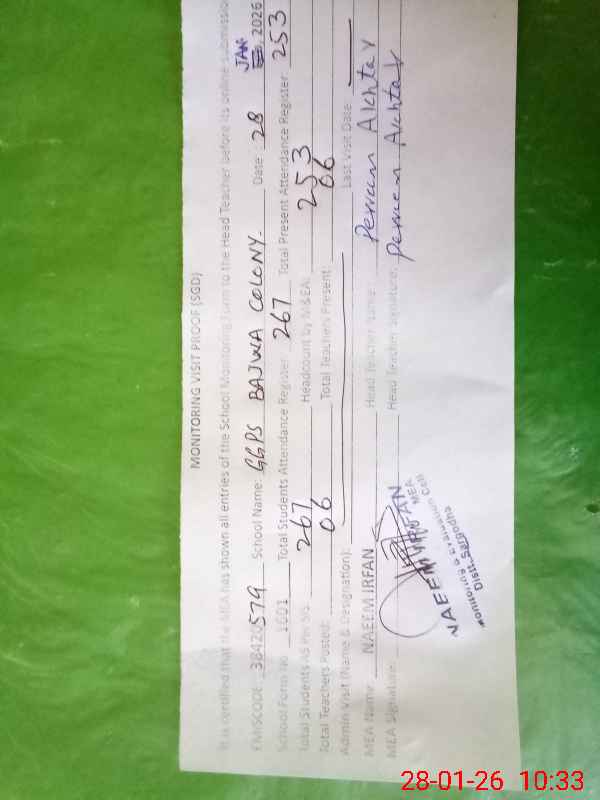 MONITORING VISIT PROOF (SGD)
It is certified that the MEA has shown all entries of the School Monitoring Form to the Head Teacher before its online submission
EMISCODE: 38420579 School Name: GGPS BAJWA COLONY. Date: 28 JAN 2026
School Form No 1601 Total Students Attendance Register 267 Total Present Attendance Register 253
Total Students AS Per SIS: 267 Headcount by M&EA: 253
Total Teachers Posted: 06 Total Teachers Present: 06
Admin Visit (Name & Designation): Last Visit Date:
MEA Name NAEEM IRFAN Head Teacher Name: Perveen Akhtar
MEA Signature: Head Teacher Signature: Perveen Akhtar
NAEEM IRFAN
MEA
Monitoring & Evaluation Cell
Distt. Sargodha
28-01-26 10:33